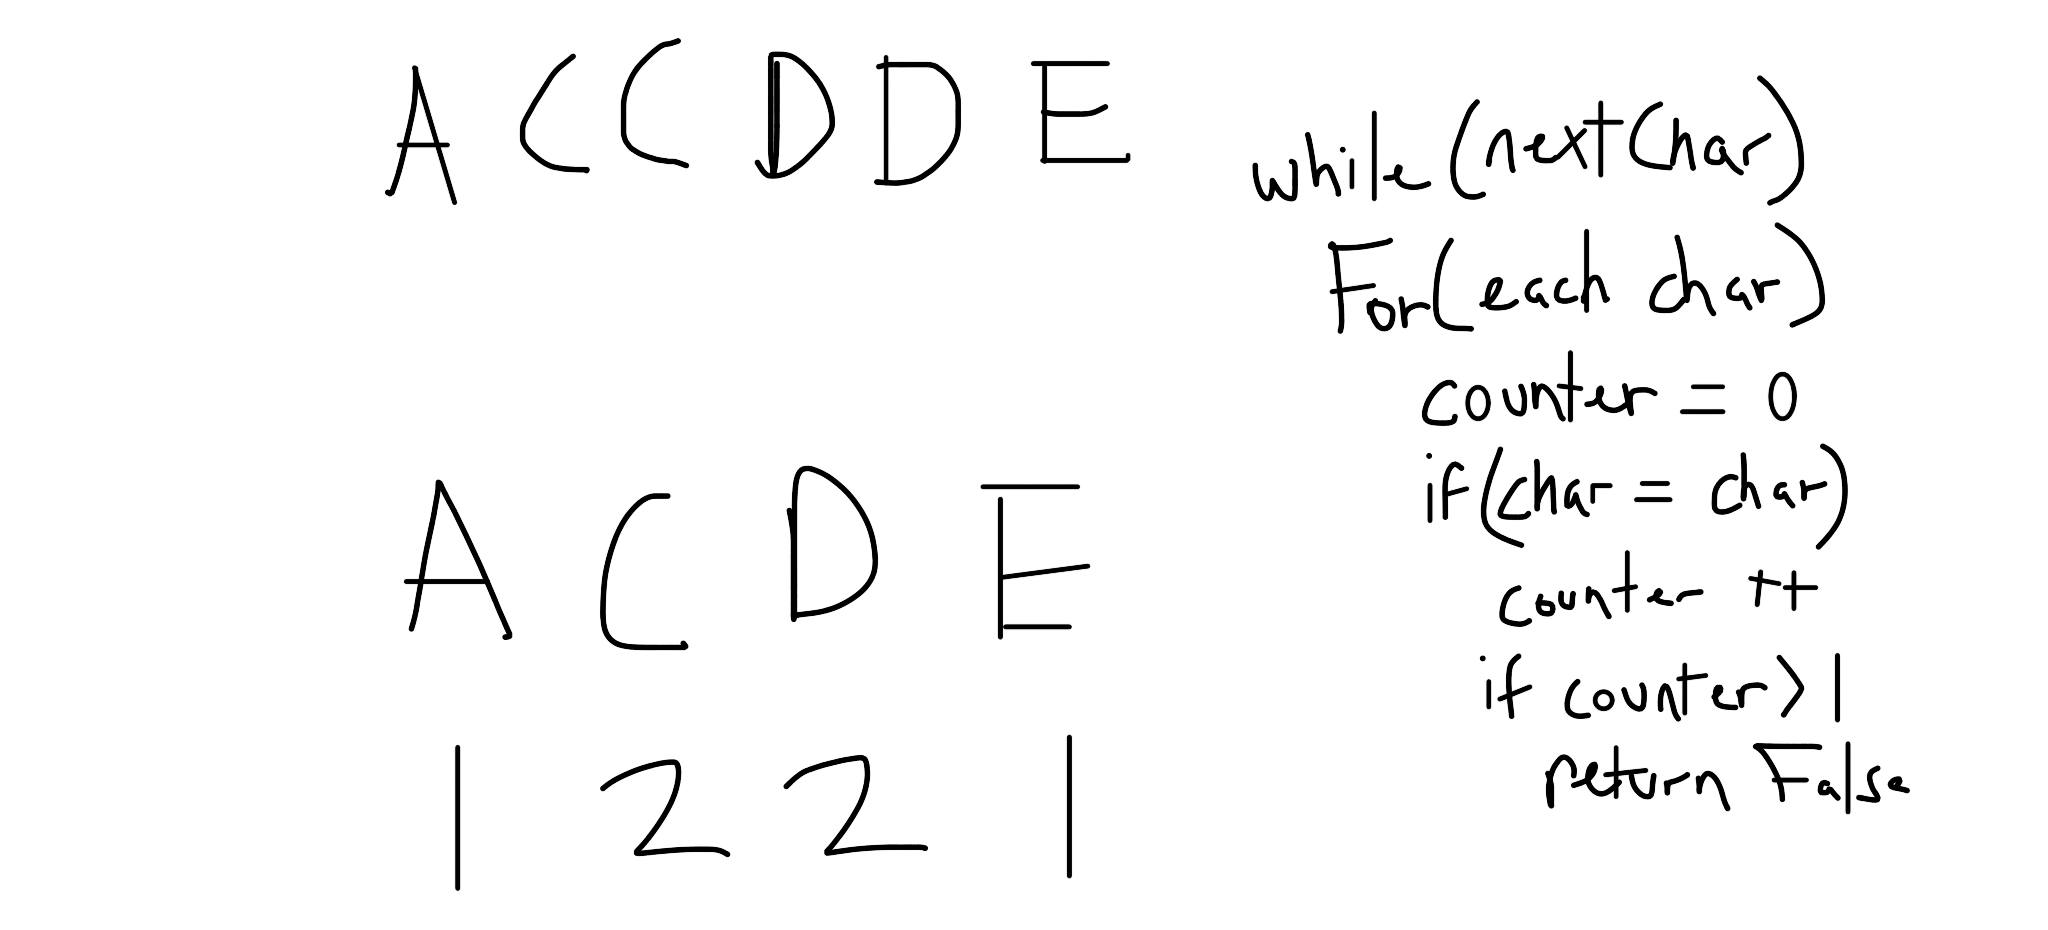 A C C D D E
A C D E
1 2 2 1
while (nextChar)
For(each char)
counter = 0
if(char = char)
counter ++
if counter>1
return False